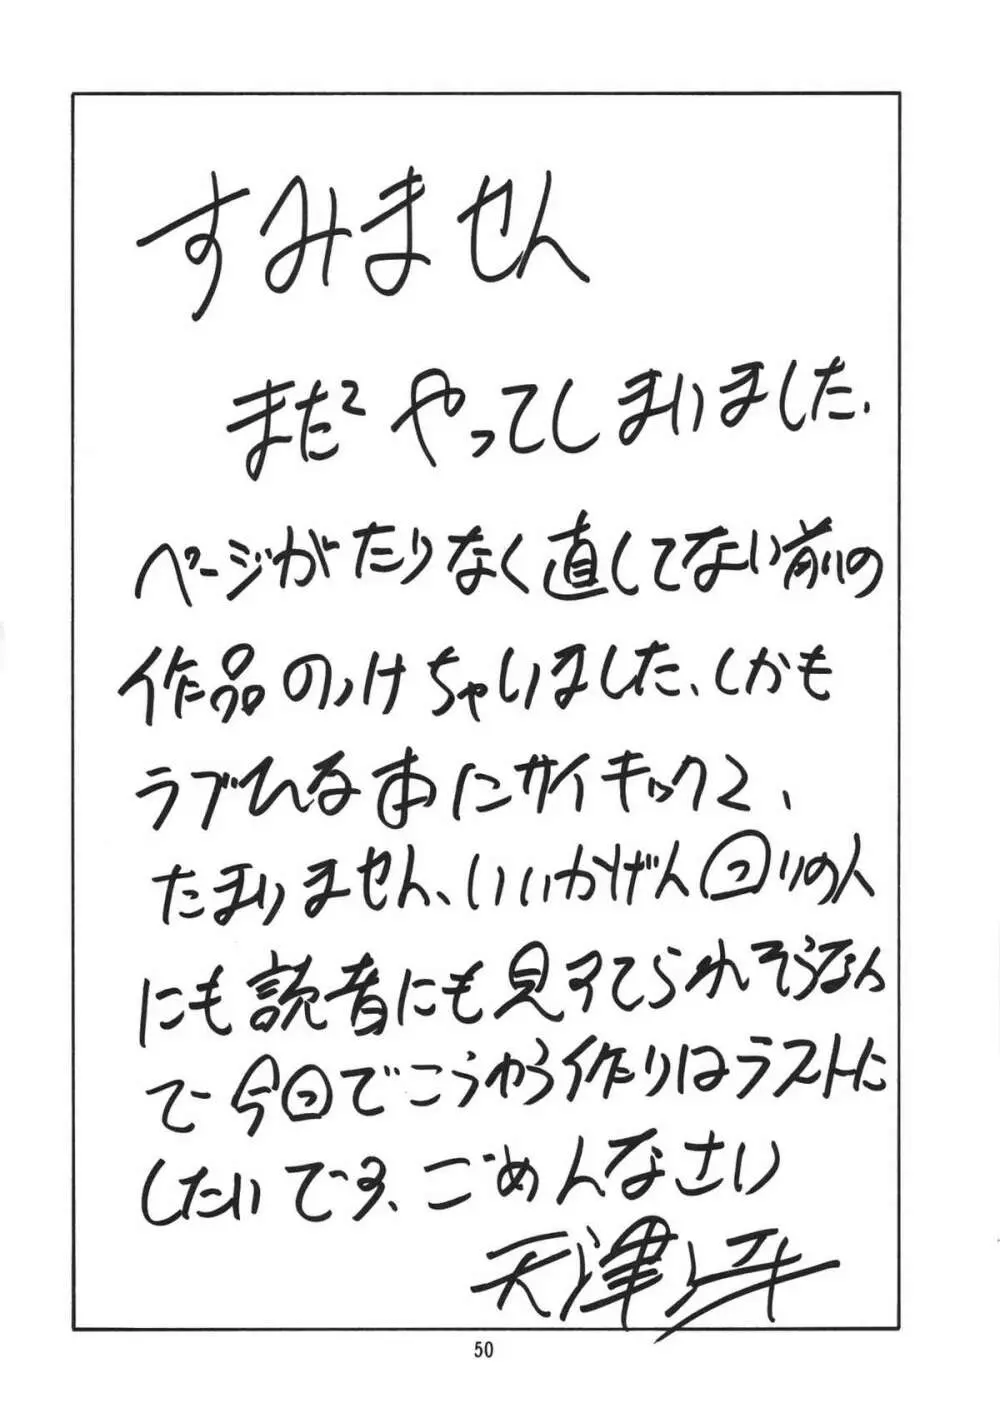 すみません
まだやってしまいました.
ページがたりなく直してない前の
作品のっけちゃいました、しかも
ラブひな本にサイキック2、
たまりません、いいかげん回りの人
にも読者にも見すてられそうなん
で今回でこうゆう作りはラストに
したいです、ごめんなさい
天津
50